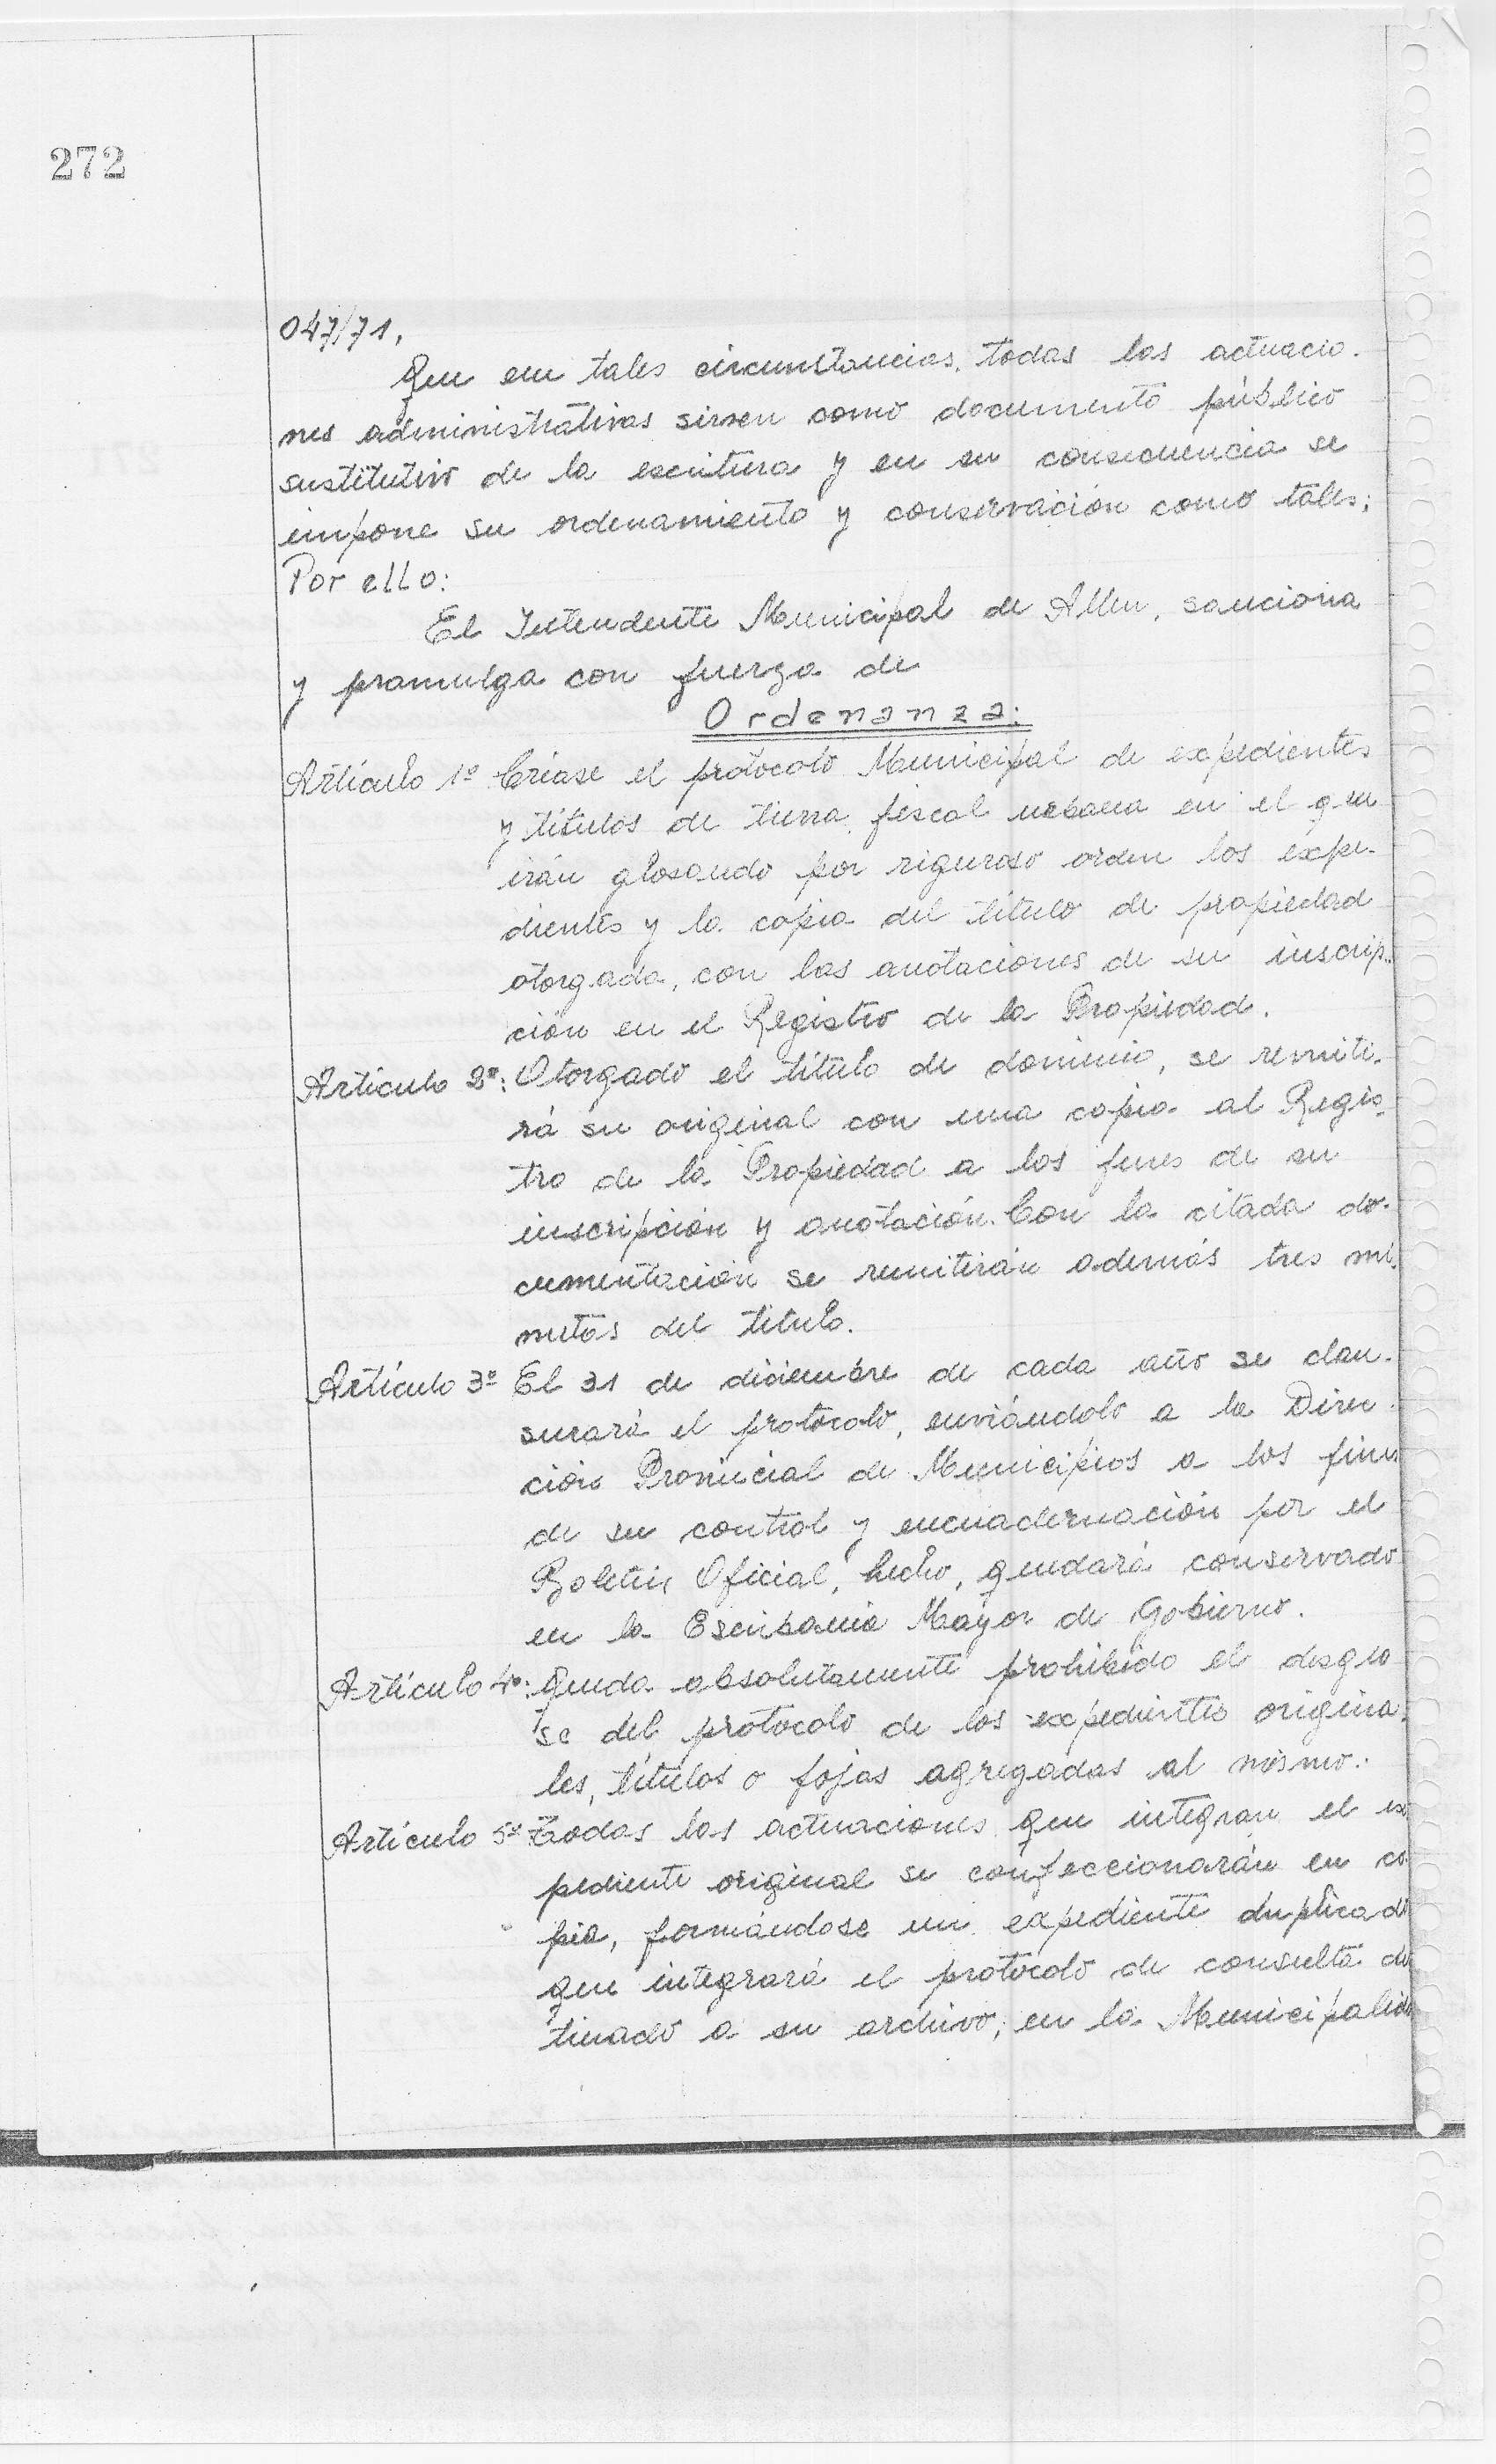 272
047/71.
Que en tales circunstancias, todas las actuacio-
nes administrativas sirven como documento público
sustitutivo de la escritura y en su consecuencia se
impone su ordenamiento y conservación como tales;
Por ello:
El Intendente Municipal de Allen, sanciona
y promulga con fuerza de
Ordenanza:
Artículo 1º Créase el protocolo Municipal de expedientes
y títulos de tierra fiscal urbana en el que
irán glosando por riguroso orden los expe-
dientes y la copia del título de propiedad
otorgada, con las anotaciones de su inscrip-
ción en el Registro de la Propiedad.
Artículo 2º: Otorgado el título de dominio, se remiti-
rá su original con una copia al Regis-
tro de la Propiedad a los fines de su
inscripción y anotación. Con la citada do-
cumentación se remitirán además tres mi-
nutas del título.
Artículo 3º El 31 de diciembre de cada año se clau-
surará el protocolo, enviándolo a la Direc-
ción Provincial de Municipios a los fines
de su control y encuadernación por el
Boletín Oficial, hecho, quedará conservado
en la Escribanía Mayor de Gobierno.
Artículo 4º: Queda absolutamente prohibido el desglo
se del protocolo de los expedientes origina-
les, títulos o fojas agregadas al mismo.
Artículo 5º Todas las actuaciones que integran el ex
pediente original se confeccionarán en co
pia, formándose un expediente duplicado
que integrará el protocolo de consulta des
tinado a su archivo, en la Municipalida